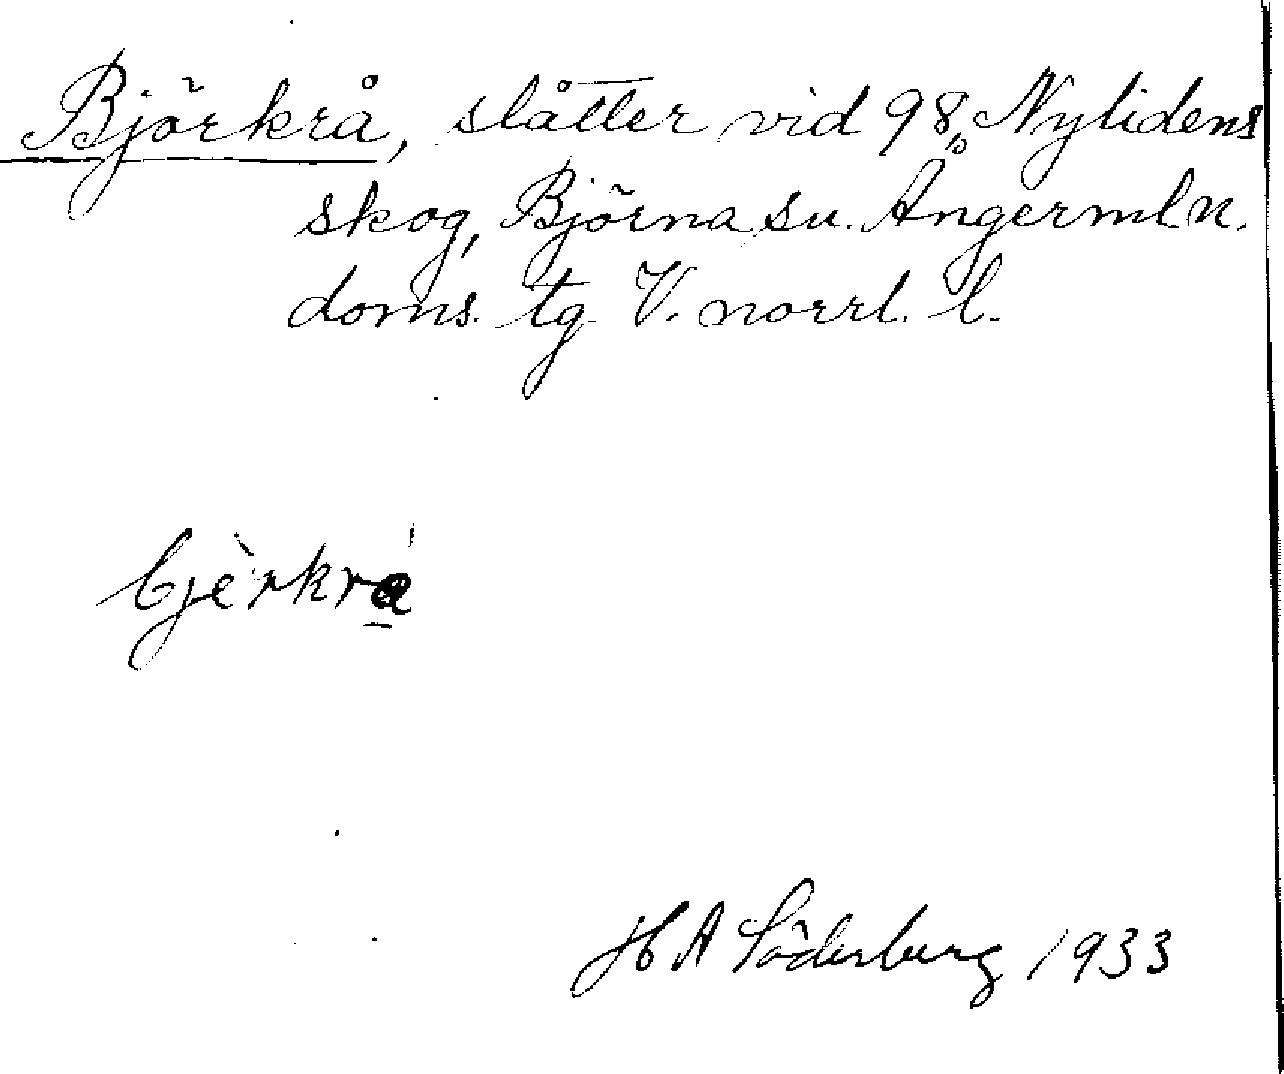 Björkrå, slåtter vid 98, Nylidens
skog, Björna sn. Ångerml. n.
doms. tg V. norrl. l.
bjèrkrá
H A Söderberg 1933